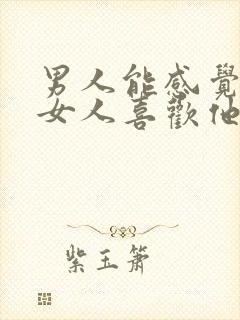 男人能感覺
女人喜歡他
紫玉簫